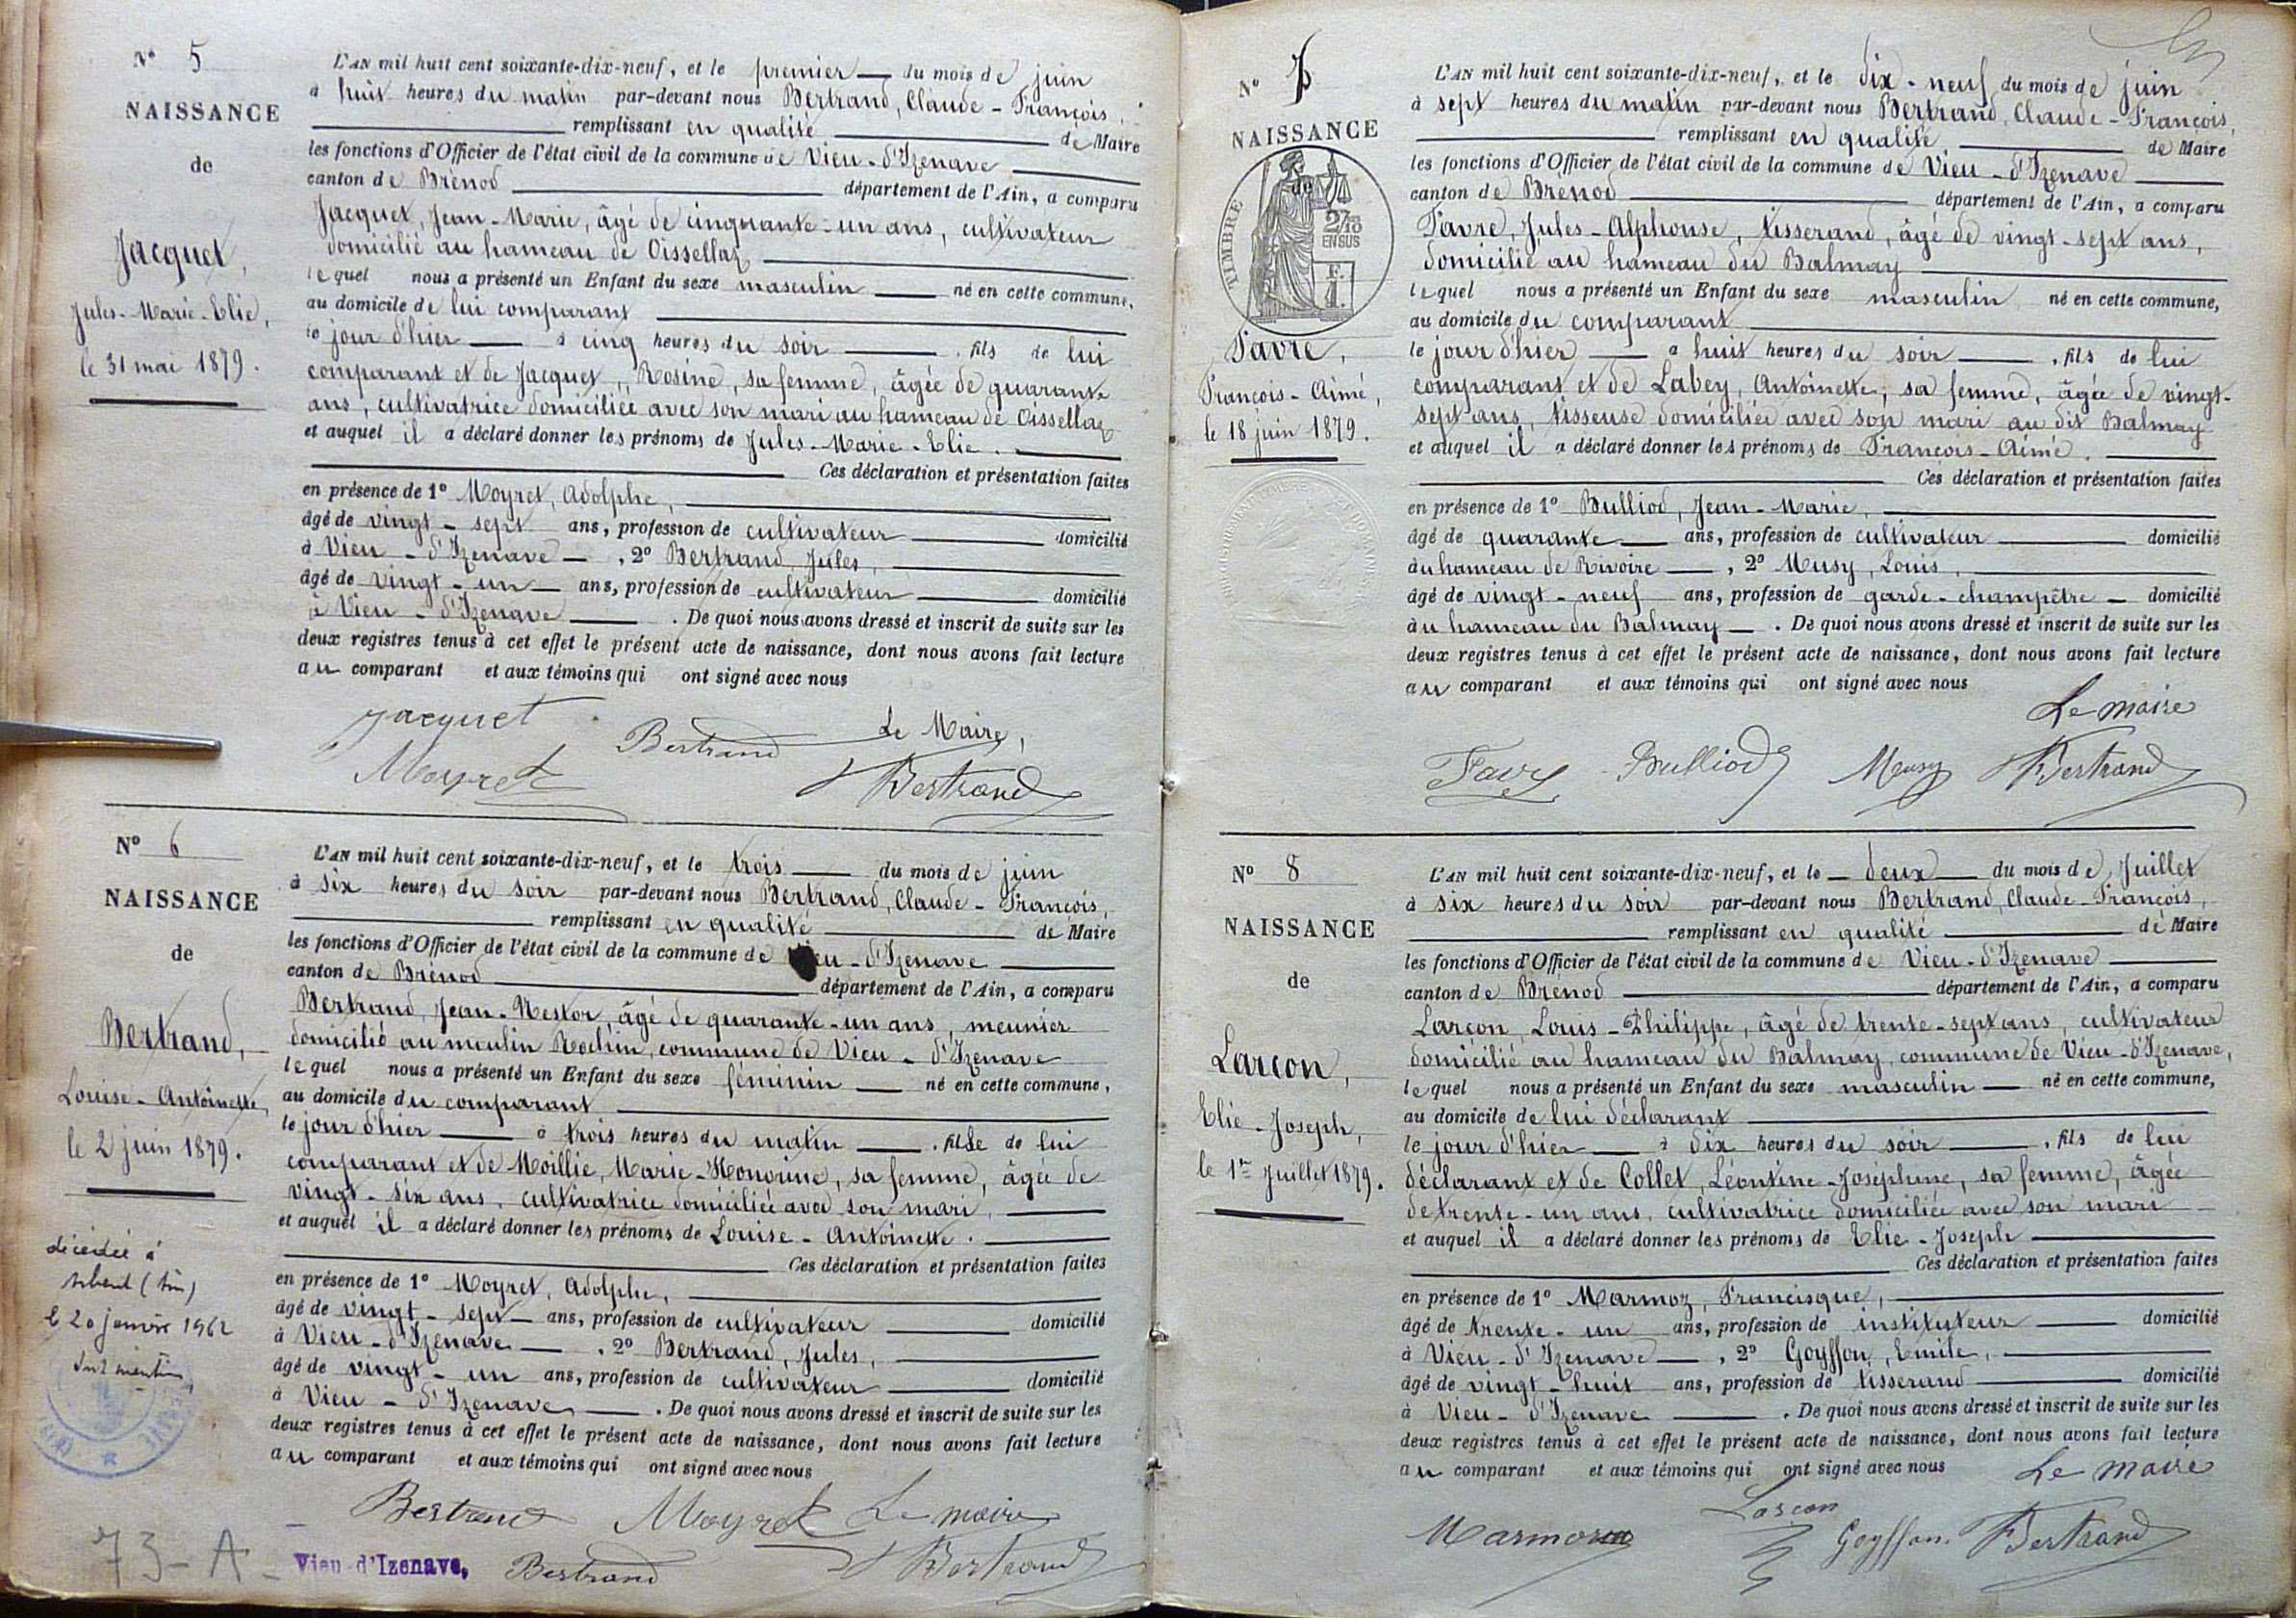 N° 5
NAISSANCE
de
Jacquet,
Jules-Marie-Elie,
le 31 mai 1879.
L'AN mil huit cent soixante-dix-neuf, et le premier du mois de juin
à huit heures du matin par-devant nous Bertrand, Claude-François,
remplissant en qualité de Maire
les fonctions d'Officier de l'état civil de la commune de Vieu-d'Izenave
canton de Brénod département de l'Ain, a comparu
Jacquet, Jean-Marie, âgé de cinquante-un ans, cultivateur
domicilié au hameau de Oissellaz
lequel nous a présenté un Enfant du sexe masculin né en cette commune,
au domicile de lui comparant
le jour d'hier à cinq heures du soir, fils de lui
comparant et de Jacquet, Rosine, sa femme, âgée de quarante
ans, cultivatrice domiciliée avec son mari au hameau de Oissellaz
et auquel il a déclaré donner les prénoms de Jules-Marie-Elie.
Ces déclaration et présentation faites
en présence de 1° Moyret, Adolphe,
âgé de vingt-sept ans, profession de cultivateur domicilié
à Vieu-d'Izenave, 2° Bertrand, Jules,
âgé de vingt-un ans, profession de cultivateur domicilié
à Vieu-d'Izenave. De quoi nous avons dressé et inscrit de suite sur les
deux registres tenus à cet effet le présent acte de naissance, dont nous avons fait lecture
au comparant et aux témoins qui ont signé avec nous
Jacquet Le Maire,
Moyret Bertrand Bertrand
N° 6
NAISSANCE
de
Bertrand,
Louise-Antoinette,
le 2 juin 1879.
décédée à
(Ain)
le 20 janvier 1962
dont mention,
L'AN mil huit cent soixante-dix-neuf, et le trois du mois de juin
à six heures du soir par-devant nous Bertrand, Claude-François,
remplissant en qualité de Maire
les fonctions d'Officier de l'état civil de la commune de Vieu-d'Izenave
canton de Brénod département de l'Ain, a comparu
Bertrand, Jean-Nestor, âgé de quarante-un ans, meunier
domicilié au moulin Rochin, commune de Vieu-d'Izenave
lequel nous a présenté un Enfant du sexe féminin né en cette commune,
au domicile du comparant
le jour d'hier à trois heures du matin, fille de lui
comparant et de Moillie, Marie-Honorine, sa femme, âgée de
vingt-six ans, cultivatrice domiciliée avec son mari,
et auquel il a déclaré donner les prénoms de Louise-Antoinette.
Ces déclaration et présentation faites
en présence de 1° Moyret, Adolphe,
âgé de vingt-sept ans, profession de cultivateur domicilié
à Vieu-d'Izenave, 2° Bertrand, Jules,
âgé de vingt-un ans, profession de cultivateur domicilié
à Vieu-d'Izenave. De quoi nous avons dressé et inscrit de suite sur les
deux registres tenus à cet effet le présent acte de naissance, dont nous avons fait lecture
au comparant et aux témoins qui ont signé avec nous
Bertrand Moyret Le maire
Bertrand Bertrand
73-A
Vieu-d'Izenave,
N° 7
NAISSANCE
de
TIMBRE
2/10
EN SUS
F.
1.
Favre,
François-Aimé,
le 18 juin 1879.
L'AN mil huit cent soixante-dix-neuf, et le dix-neuf du mois de juin
à sept heures du matin par-devant nous Bertrand, Claude-François,
remplissant en qualité de Maire
les fonctions d'Officier de l'état civil de la commune de Vieu-d'Izenave
canton de Brénod département de l'Ain, a comparu
Favre, Jules-Alphonse, tisserand, âgé de vingt-sept ans,
domicilié au hameau du Balmay
lequel nous a présenté un Enfant du sexe masculin né en cette commune,
au domicile du comparant
le jour d'hier à huit heures du soir, fils de lui
comparant et de Labey, Antoinette, sa femme, âgée de vingt-
sept ans, tisseuse domiciliée avec son mari au dit Balmay
et auquel il a déclaré donner les prénoms de François-Aimé.
Ces déclaration et présentation faites
en présence de 1° Bulliod, Jean-Marie,
âgé de quarante ans, profession de cultivateur domicilié
au hameau de Rivoire, 2° Musy, Louis,
âgé de vingt-neuf ans, profession de garde-champêtre domicilié
au hameau du Balmay. De quoi nous avons dressé et inscrit de suite sur les
deux registres tenus à cet effet le présent acte de naissance, dont nous avons fait lecture
au comparant et aux témoins qui ont signé avec nous
Le maire
Favre Bulliod Musy Bertrand
N° 8
NAISSANCE
de
Larcon,
Elie-Joseph,
le 1er Juillet 1879.
L'AN mil huit cent soixante-dix-neuf, et le deux du mois de Juillet
à six heures du soir par-devant nous Bertrand, Claude-François,
remplissant en qualité de Maire
les fonctions d'Officier de l'état civil de la commune de Vieu-d'Izenave
canton de Brénod département de l'Ain, a comparu
Larcon, Louis-Philippe, âgé de trente-sept ans, cultivateur
domicilié au hameau du Balmay, commune de Vieu-d'Izenave,
lequel nous a présenté un Enfant du sexe masculin né en cette commune,
au domicile de lui déclarant
le jour d'hier à dix heures du soir, fils de lui
déclarant et de Collet, Léontine-Joséphine, sa femme, âgée
de trente-un ans, cultivatrice domiciliée avec son mari
et auquel il a déclaré donner les prénoms de Elie-Joseph
Ces déclaration et présentation faites
en présence de 1° Marmoz, Francisque,
âgé de trente-un ans, profession de instituteur domicilié
à Vieu-d'Izenave, 2° Goyffon, Emile,
âgé de vingt-huit ans, profession de tisserand domicilié
à Vieu-d'Izenave. De quoi nous avons dressé et inscrit de suite sur les
deux registres tenus à cet effet le présent acte de naissance, dont nous avons fait lecture
au comparant et aux témoins qui ont signé avec nous
Le maire
Larcon
Marmoz Goyffon Bertrand